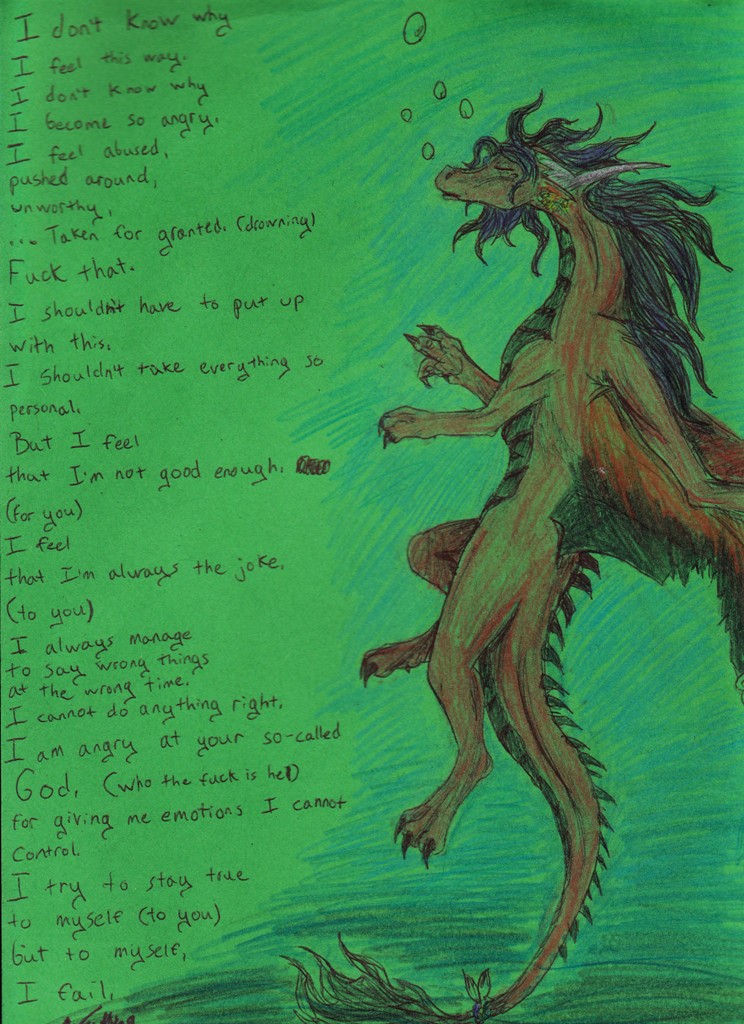 I don't know why
I feel this way.
I don't know why
I become so angry.
I feel abused,
pushed around,
unworthy,
... Taken for granted. (drowning)
Fuck that.
I shouldn't have to put up
with this.
I shouldn't take everything so
personal.
But I feel
that I'm not good enough.
(for you)
I feel
that I'm always the joke.
(to you)
I always manage
to say wrong things
at the wrong time.
I cannot do anything right.
I am angry at your so-called
God. (who the fuck is he?)
for giving me emotions I cannot
control.
I try to stay true
to myself (to you)
but to myself,
I fail.